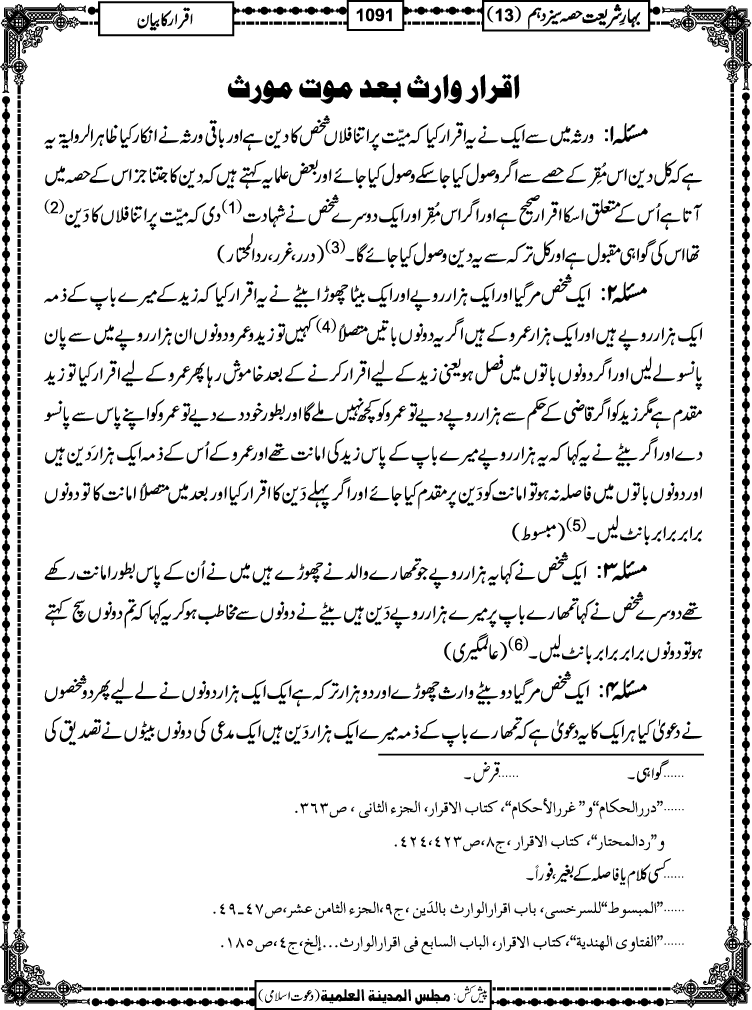 بہارِ شریعت حصہ سیزدہم (13)
1091
اقرار کا بیان
اقرار وارث بعد موت مورث
مسئلہ۱: ورثہ میں سے ایک نے یہ اقرار کیا کہ میّت پر اتنا فلاں شخص کا دین ہے اور باقی ورثہ نے انکار کیا ظاہر الروایۃ یہ
ہے کہ کل دین اس مُقِر کے حصے سے اگر وصول کیا جا سکے وصول کیا جائے اور بعض علما یہ کہتے ہیں کہ دین کا جتنا جز اس کے حصہ میں
آتا ہے اُس کے متعلق اسکا اقرار صحیح ہے اور اگر اس مُقِر اور ایک دوسرے شخص نے شہادت (1) دی کہ میّت پر اتنا فلاں کا دَین (2)
تھا اس کی گواہی مقبول ہے اور کل ترکہ سے یہ دین وصول کیا جائے گا۔ (3) (درر، غرر، ردالمحتار)
مسئلہ۲: ایک شخص مر گیا اور ایک ہزار روپے اور ایک بیٹا چھوڑا بیٹے نے یہ اقرار کیا کہ زید کے میرے باپ کے ذمہ
ایک ہزار روپے ہیں اور ایک ہزار عمرو کے ہیں اگر یہ دونوں باتیں متصلاً (4) کہیں تو زید و عمرو دونوں ان ہزار روپے میں سے پان
پانسو لے لیں اور اگر دونوں باتوں میں فصل ہو یعنی زید کے لیے اقرار کرنے کے بعد خاموش رہا پھر عمرو کے لیے اقرار کیا تو زید
مقدم ہے مگر زید کو اگر قاضی کے حکم سے ہزار روپے دیے تو عمرو کو کچھ نہیں ملے گا اور بطور خود دے دیے تو عمرو کو اپنے پاس سے پانسو
دے اور اگر بیٹے نے یہ کہا کہ یہ ہزار روپے میرے باپ کے پاس زید کی امانت تھے اور عمرو کے اُس کے ذمہ ایک ہزار دَین ہیں
اور دونوں باتوں میں فاصلہ نہ ہو تو امانت کو دَین پر مقدم کیا جائے اور اگر پہلے دَین کا اقرار کیا اور بعد میں متصلاً امانت کا تو دونوں
برابر برابر بانٹ لیں۔ (5) (مبسوط)
مسئلہ۳: ایک شخص نے کہا یہ ہزار روپے جو تمھارے والد نے چھوڑے ہیں میں نے اُن کے پاس بطور امانت رکھے
تھے دوسرے شخص نے کہا تمھارے باپ پر میرے ہزار روپے دَین ہیں بیٹے نے دونوں سے مخاطب ہو کر یہ کہا کہ تم دونوں سچ کہتے
ہو تو دونوں برابر برابر بانٹ لیں۔ (6) (عالمگیری)
مسئلہ۴: ایک شخص مر گیا دو بیٹے وارث چھوڑے اور دو ہزار ترکہ ہے ایک ایک ہزار دونوں نے لے لیے پھر دو شخصوں
نے دعویٰ کیا ہر ایک کا یہ دعویٰ ہے کہ تمھارے باپ کے ذمہ میرے ایک ہزار دَین ہیں ایک مدعی کی دونوں بیٹوں نے تصدیق کی
......گواہی۔ ......قرض۔
......"دررالحکام" و "غررالأحکام"، کتاب الاقرار، الجزء الثانی، ص۳۶۳.
و"ردالمحتار"، کتاب الاقرار، ج۸، ص۴۲۳،۴۲۴.
......کسی کلام یا فاصلہ کے بغیر، فوراً۔
......"المبسوط" للسرخسی، باب اقرارالوارث بالدَین، ج۹، الجزء الثامن عشر، ص۴۷-۴۹.
......"الفتاوی الھندیۃ"، کتاب الاقرار، الباب السابع فی اقرارالوارث...إلخ، ج٤، ص۱۸۵.
پیش کش: مجلس المدینۃ العلمیۃ (دعوت اسلامی)